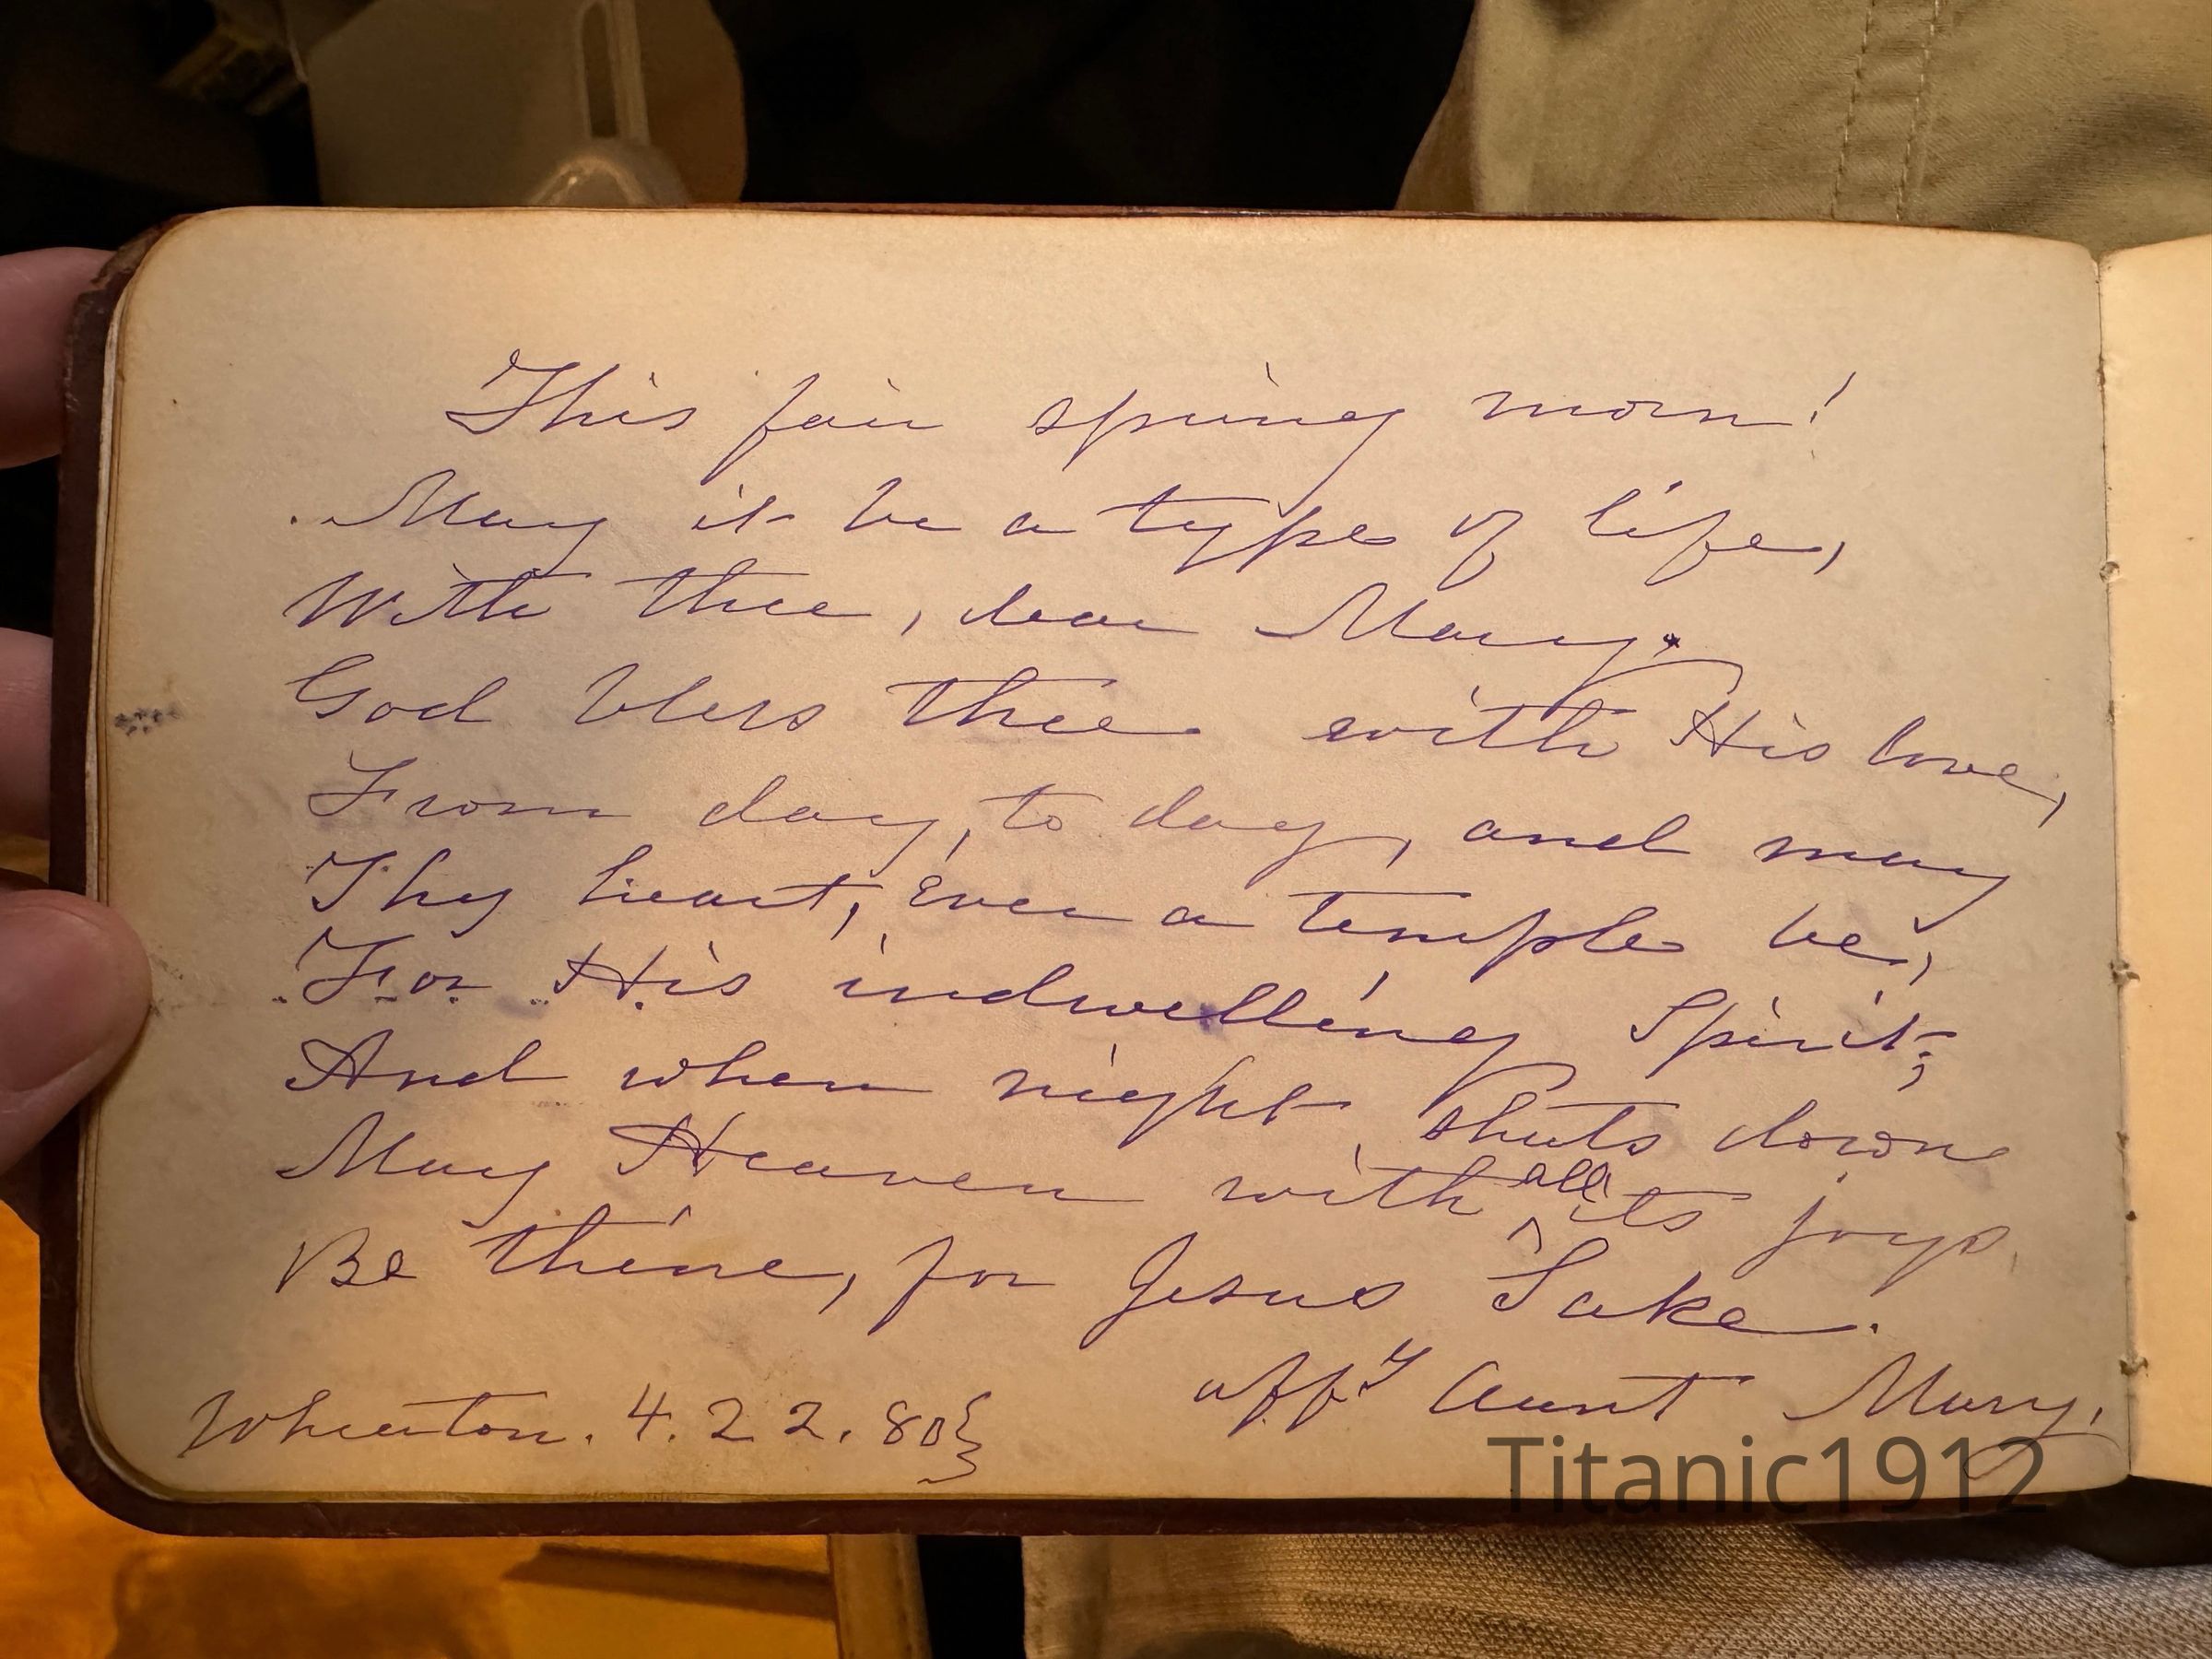 This fair spring morn!
May it be a type of life,
With thee, dear Mary.
God bless thee with His love,
From day, to day, and may
Thy heart, ever a temple be,
For His indwelling Spirit;
And when night shuts down
May Heaven with all its joys,
Be thine, for Jesus Sake.
affy Aunt Mary.
Wheaton. 4.22.80
Titanic1912